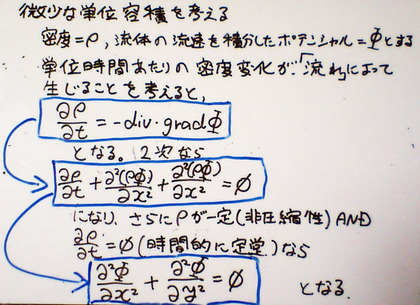 微少な単位容積を考える
密度=ρ, 流体の流速を積分したポテンシャル=Φとする
単位時間あたりの密度変化が、「流れ」によって
生じることを考えると、
∂ρ/∂t = -div・gradΦ
となる。2次なら
∂ρ/∂t + ∂²(ρΦ)/∂x² + ∂²(ρΦ)/∂x² = 0
になり、さらにρが一定(非圧縮性) AND
∂ρ/∂t = 0 (時間的に定常)なら
∂²Φ/∂x² + ∂²Φ/∂y² = 0 となる